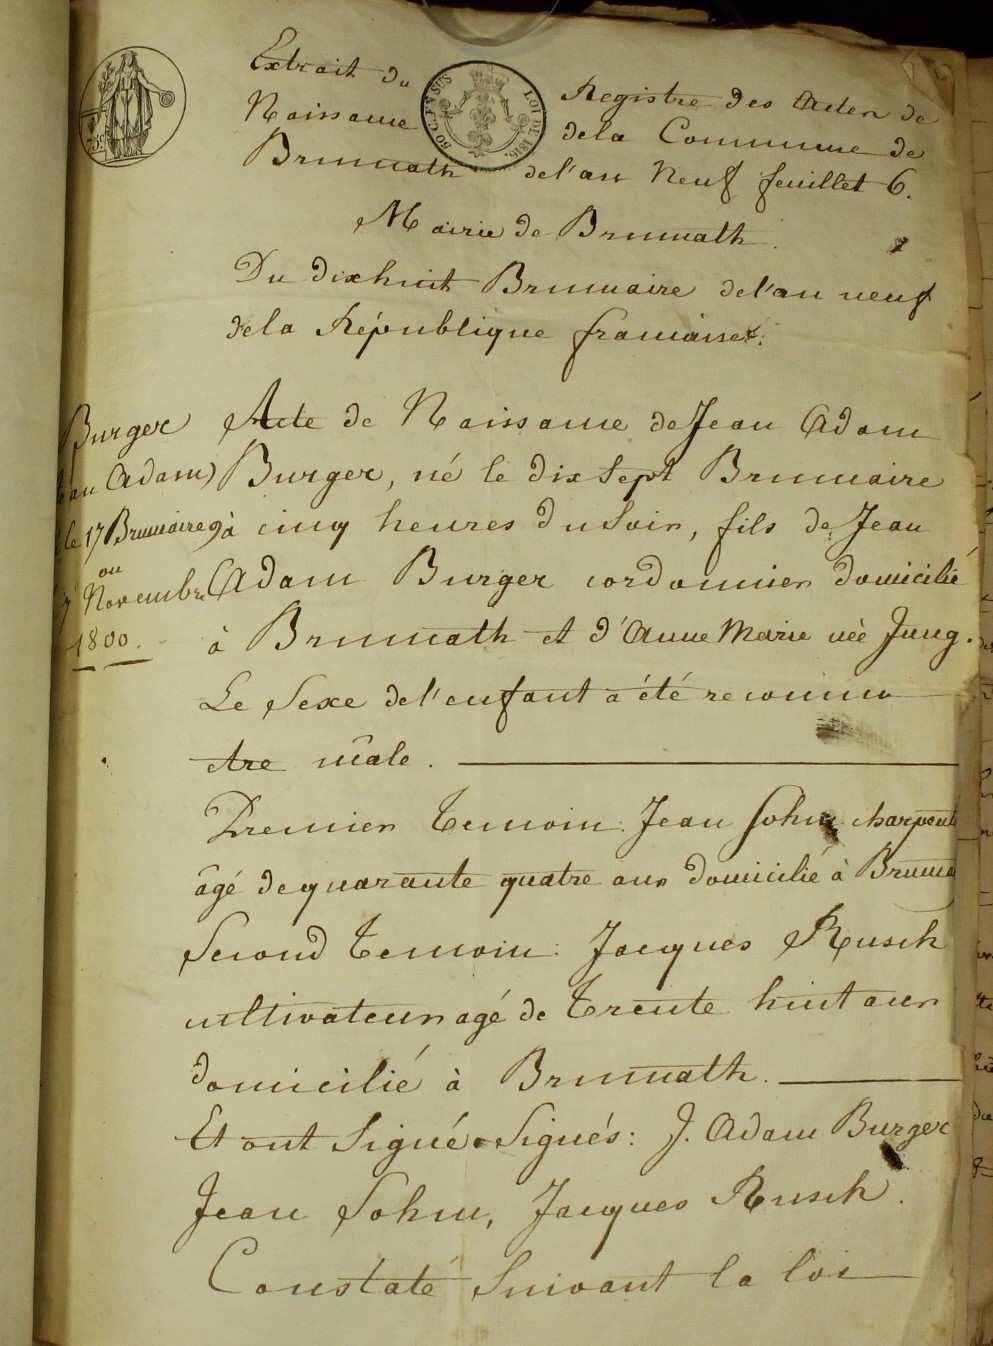 Extrait du Registre des Actes de
Naissance dela Commune de
Brumath del'an Neuf feuillet 6.
50 C. EN SUS
LOI DE 1816.
75c
Mairie de Brumath.
Du dixhuit Brumaire del'an neuf
dela République française.
Burger
Jean Adam
le 17 Brumaire 9
ou
Novembre
1800.
Acte de Naissance de Jean Adam
Burger, né le dix Sept Brumaire
à cinq heures du Soir, fils de Jean
Adam Burger cordonnier domicilié
à Brumath et d'Anne Marie née Jung.
Le Sexe del'enfant a été reconnu
etre mâle.
Premier Temoin: Jean Sohn charpent
âgé de quarante quatre ans domicilié à Bruma
Second Temoin: Jacques Rusch
cultivateur agé de Trente huit ans
domicilié à Brumath.
Et ont Signé. Signés: J. Adam Burger
Jean Sohn, Jacques Rusch.
Constaté Suivant la loi